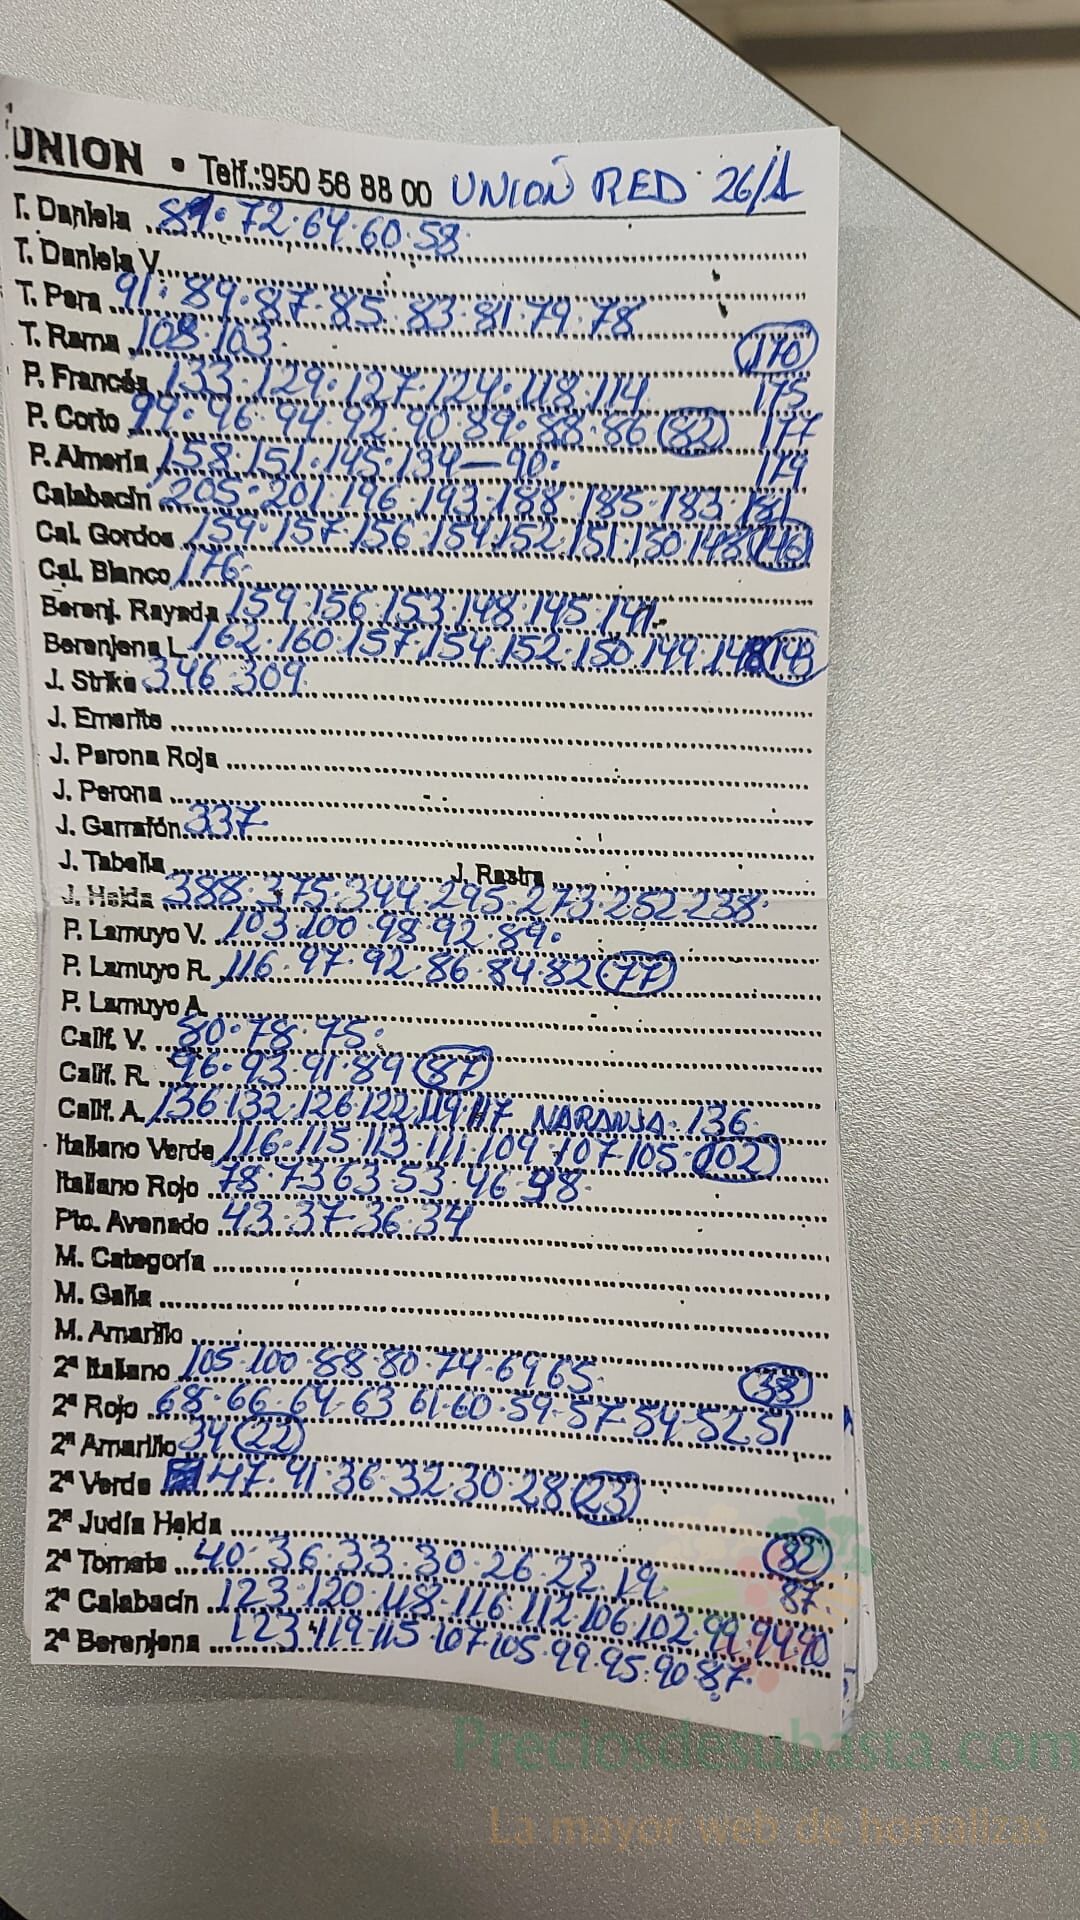 UNION • Telf.:950 56 88 00 UNIÓN RED 26/1
T. Daniela 81·72·64·60·58
T. Daniela V.
T. Pera 91·89·87·85·83·81·79·78
T. Rama 108·103 170
P. Francés 133·129·127·124·118·114 175
P. Corto 99·96·94·92·90·89·88·86 82 177
P. Almería 158·151·145·134—90· 179
Calabacín 205·201·196·193·188·185·183·181
Cal. Gordos 159·157·156·154·152·151·150·148 146
Cal. Blanco 176
Berenj. Rayada 159·156·153·148·145·141
Berenjena L. 162·160·157·154·152·150·149·148 143
J. Strike 346·309
J. Emerite
J. Perona Roja
J. Perona
J. Garrafón 337
J. Tabella J. Rastra
J. Helda 388·375·344·295·273·252·238
P. Lamuyo V. 103·100·98·92·89·
P. Lamuyo R. 116·97·92·86·84·82 77
P. Lamuyo A.
Calif. V. 80·78·75·
Calif. R. 96·93·91·89 87
Calif. A. 136·132·126·122·119·117 NARANJA·136
Italiano Verde 116·115·113·111·109·107·105· 102
Italiano Rojo 78·73 63·53·46·38
Pto. Avenado 43·37·36·34
M. Categoría
M. Galia
M. Amarillo
2ª Italiano 105·100·88·80·74·69 65 38
2ª Rojo 68·66·64·63 61·60·59·57·54·52 51
2ª Amarillo 34 22
2ª Verde 47·41·36·32·30·28 23
2ª Judía Helda 82
2ª Tomate 40·36·33·30·26·22·19 87
2ª Calabacín 123·120·118·116·112·106·102·99·94 90
2ª Berenjena 123·119·115·107·105·99·95·90·87·
Preciosdesubasta.com
La mayor web de hortalizas